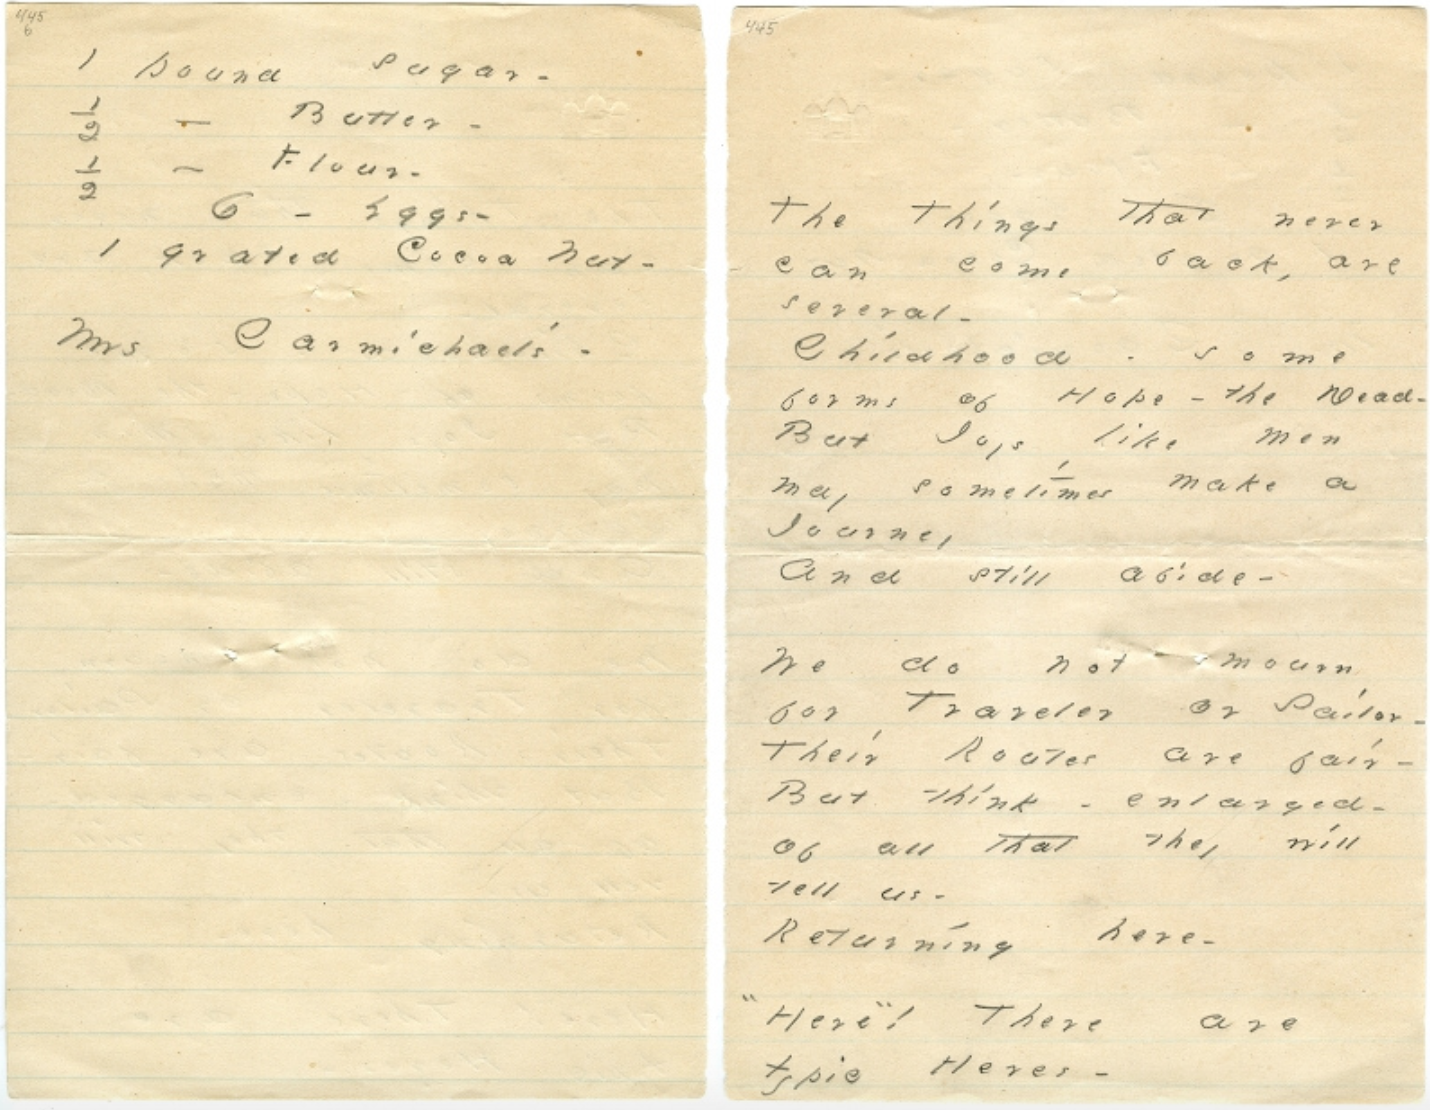 445
6
1 pound sugar -
1/2 — Butter -
1/2 — Flour -
6 - Eggs -
1 grated Cocoa Nut -
Mrs Carmichael's -
445
The Things that never
can come back, are
several -
Childhood - some
forms of Hope - the Dead -
But Joys like men
may sometimes make a
Journey
And still abide -
We do not mourn
for Traveler or Sailor -
Their Routes are fair -
But think - enlarged -
of all that they will
tell us -
Returning here -
"Here"! There are
typic Heres -